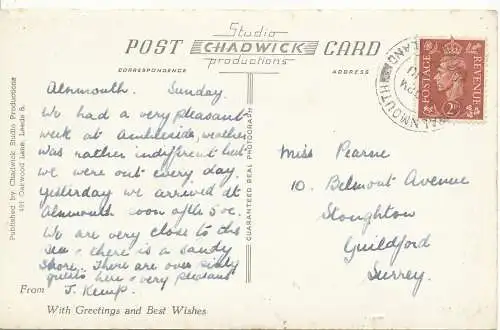 Studio
POST CHADWICK CARD
productions
CORRESPONDENCE
ADDRESS
Alnmouth. Sunday.
We had a very pleasant
week at Ambleside, weather
was rather indifferent but
we were out every day.
Yesterday we arrived at
Alnmouth soon after 5 oc.
We are very close to the
sea & there is a sandy
shore. There are over sixty
guests here & very pleasant
From J. Kemp.
With Greetings and Best Wishes
Published by Chadwick Studio Productions
Oakwood Lane, Leeds 8.
GUARANTEED REAL PHOTOGRAPH
Miss Pearne
10. Belmont Avenue
Stoughton
Guildford
Surrey.
POSTAGE
REVENUE
2D
ALNMOUTH